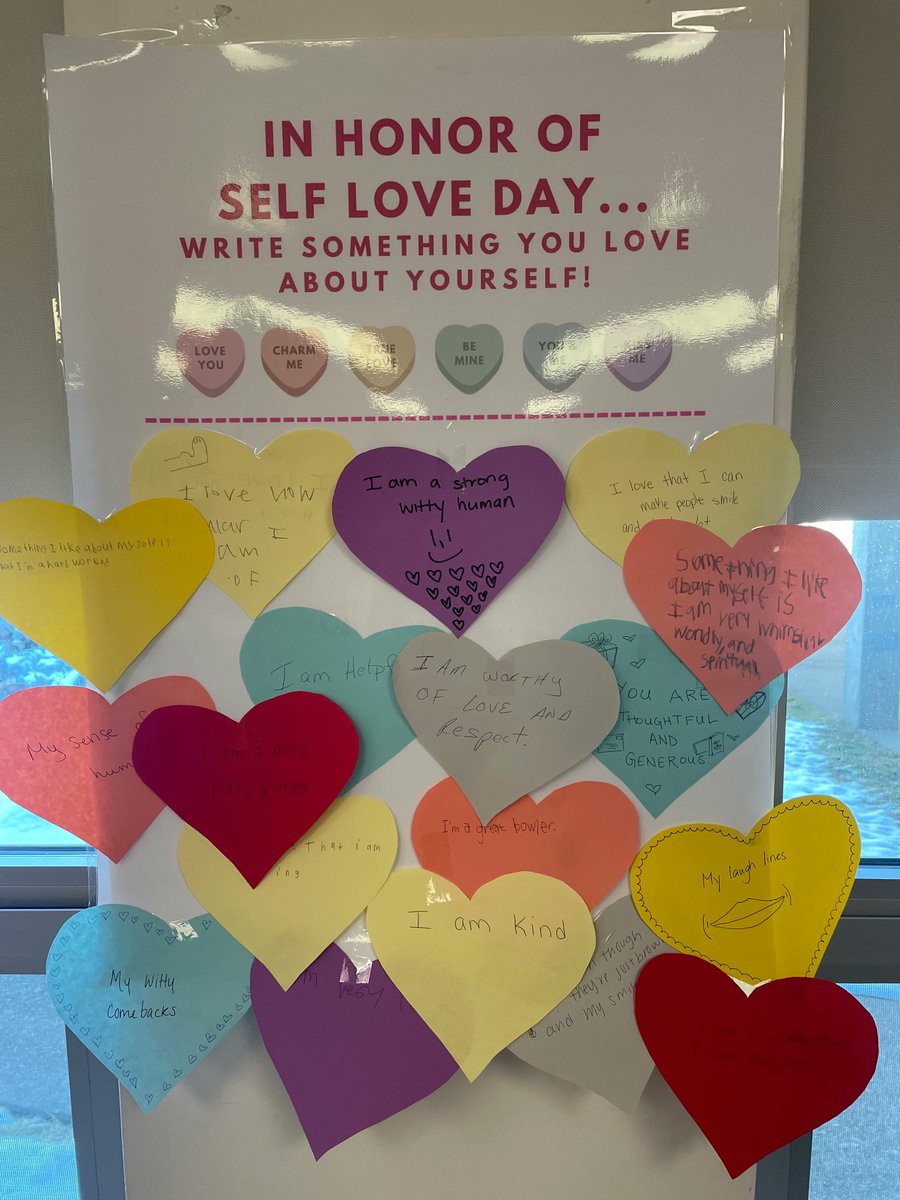 IN HONOR OF
SELF LOVE DAY...
WRITE SOMETHING YOU LOVE
ABOUT YOURSELF!
LOVE
YOU
CHARM
ME
TRUE
LOVE
BE
MINE
YOU &
ME
KISS
ME
I love how
I
am
OF
I am a strong
witty human
I love that I can
make people smile
and
Something I like about my self is
that I'm a hard worked
Something I like
about myself is
I am very whimsical
worldly, and
spiritual
I am Helpf
I AM WORTHY
OF LOVE AND
Respect.
YOU ARE
THOUGHTFUL
AND
GENEROUS.
My sense of
hum
I am a good
That i am
ing
I'm a great bowler.
My laugh lines
I am kind
My witty
comebacks
though
they're just brow
and my sm